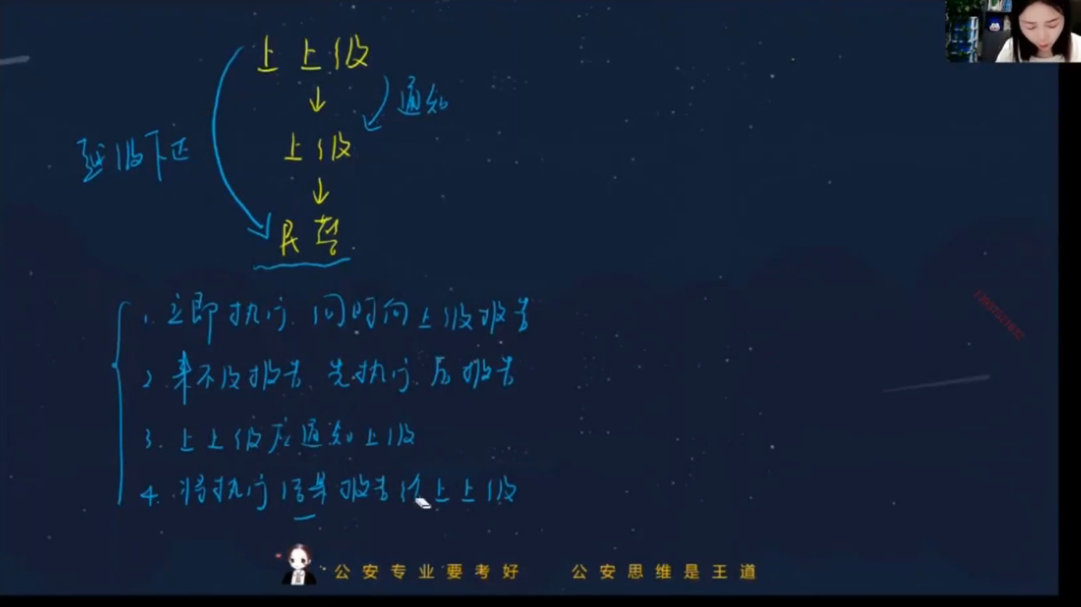 上上级
通知
上级
越级下达
民警
1. 立即执行. 同时向上级报告
2. 来不及报告. 先执行. 后报告
3. 上上级应通知上级
4. 将执行结果报告给上上级
公安专业要考好 公安思维是王道